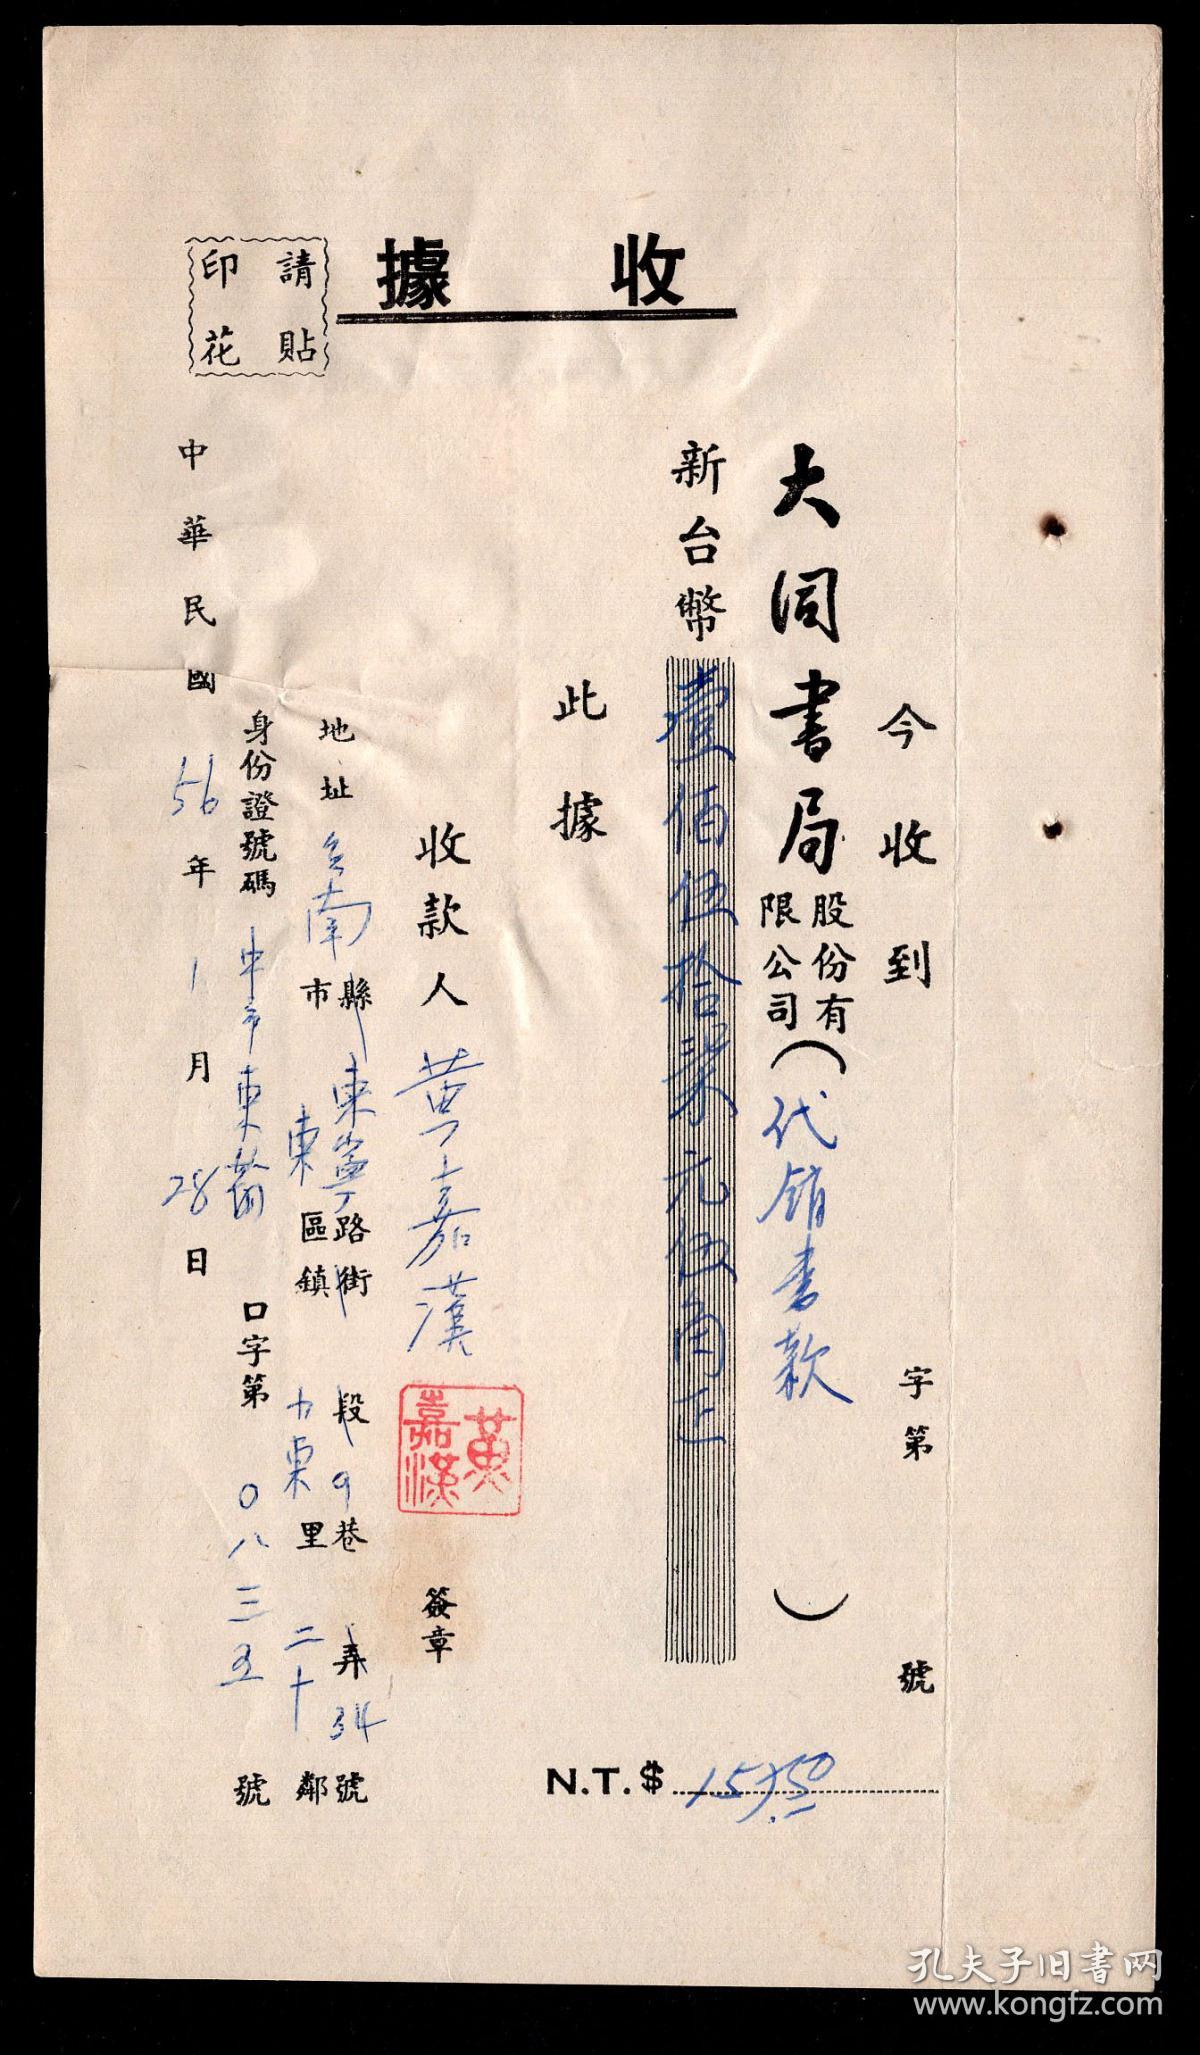 收據
請貼
印花
字第 號
今收到
大同書局股份有限公司(代銷書款)
新台幣壹佰伍拾柒元伍角正
N.T.$ 157.50
此據
收款人 黃嘉漢 簽章
黃嘉漢
地址 台南縣市 東寧路街 段 9巷 弄 34號
東區鎮 東里 二十鄰
身份證號碼 東 口字第 〇八三五 號
中華民國56年1月28日
孔夫子旧书网
www.kongfz.com